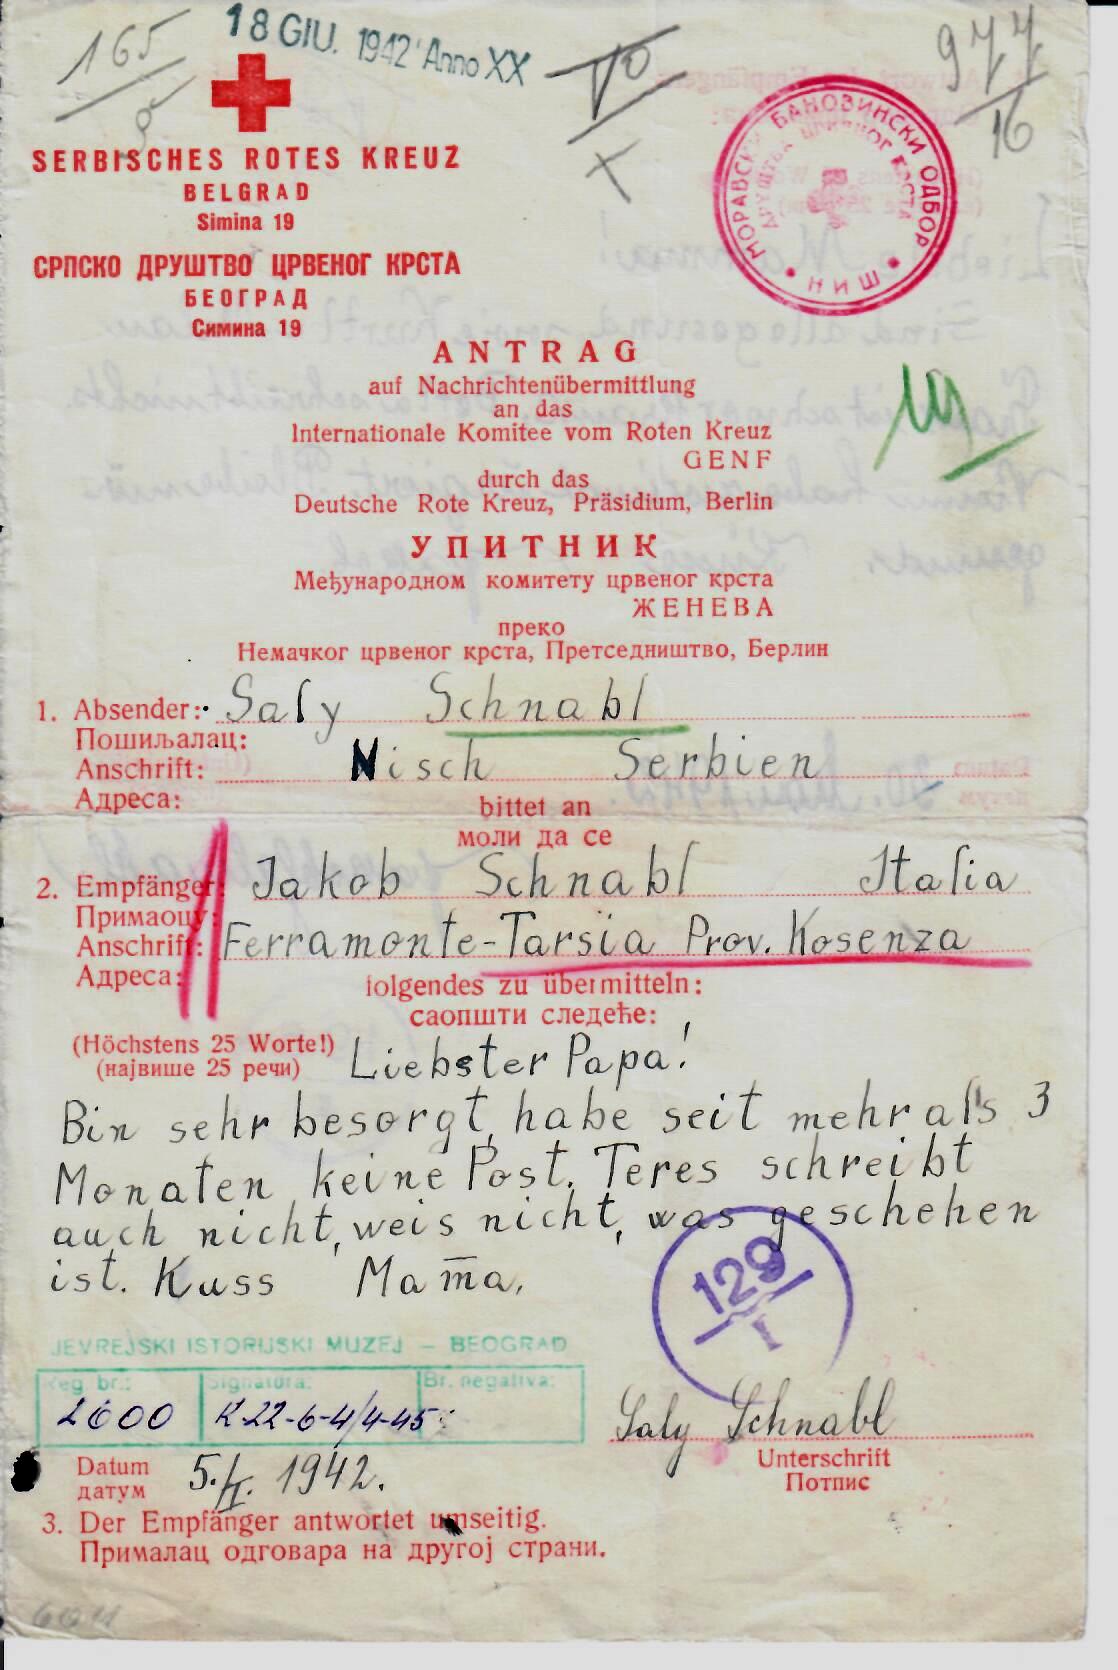 165
18 GIU. 1942 Anno XX
977
16
SERBISCHES ROTES KREUZ
BELGRAD
Simina 19
СРПСКО ДРУШТВО ЦРВЕНОГ КРСТА
БЕОГРАД
Симина 19
МОРАВСКИ БАНОВИНСКИ ОДБОР
ДРУШТВА ЦРВЕНОГ КРСТА
НИШ
ANTRAG
auf Nachrichtenübermittlung
an das
Internationale Komitee vom Roten Kreuz
GENF
durch das
Deutsche Rote Kreuz, Präsidium, Berlin
УПИТНИК
Међународном комитету црвеног крста
ЖЕНЕВА
преко
Немачког црвеног крста, Претседништво, Берлин
1. Absender: Saly Schnabl
Пошиљалац:
Anschrift: Nisch Serbien
Адреса:
bittet an
моли да се
2. Empfänger: Jakob Schnabl Italia
Примаоцу:
Anschrift: Ferramonte-Tarsia Prov. Kosenza
Адреса:
folgendes zu übermitteln:
саопшти следеће:
(Höchstens 25 Worte!)
(највише 25 речи)
Liebster Papa!
Bin sehr besorgt, habe seit mehr als 3
Monaten keine Post. Teres schreibt
auch nicht, weis nicht, was geschehen
ist. Kuss Mam̅a.
129
I
JEVREJSKI ISTORIJSKI MUZEJ – BEOGRAD
Reg br.: Signatura: Br. negativa:
2600 K-22-6-4/4-45
Saly Schnabl
Unterschrift
Потпис
Datum
датум
5./II. 1942.
3. Der Empfänger antwortet umseitig.
Прималац одговара на другој страни.